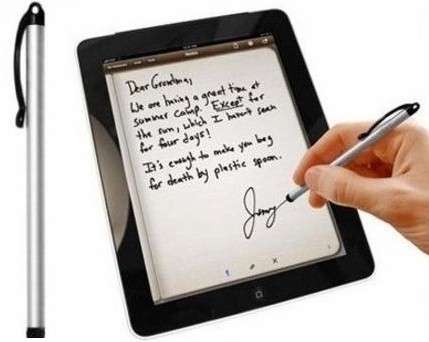 Dear Grandma,
We are having a great time at
summer camp. Except for
the sun, which I haven't seen
for four days!
It's enough to make you beg
for death by plastic spoon.
Jimmy